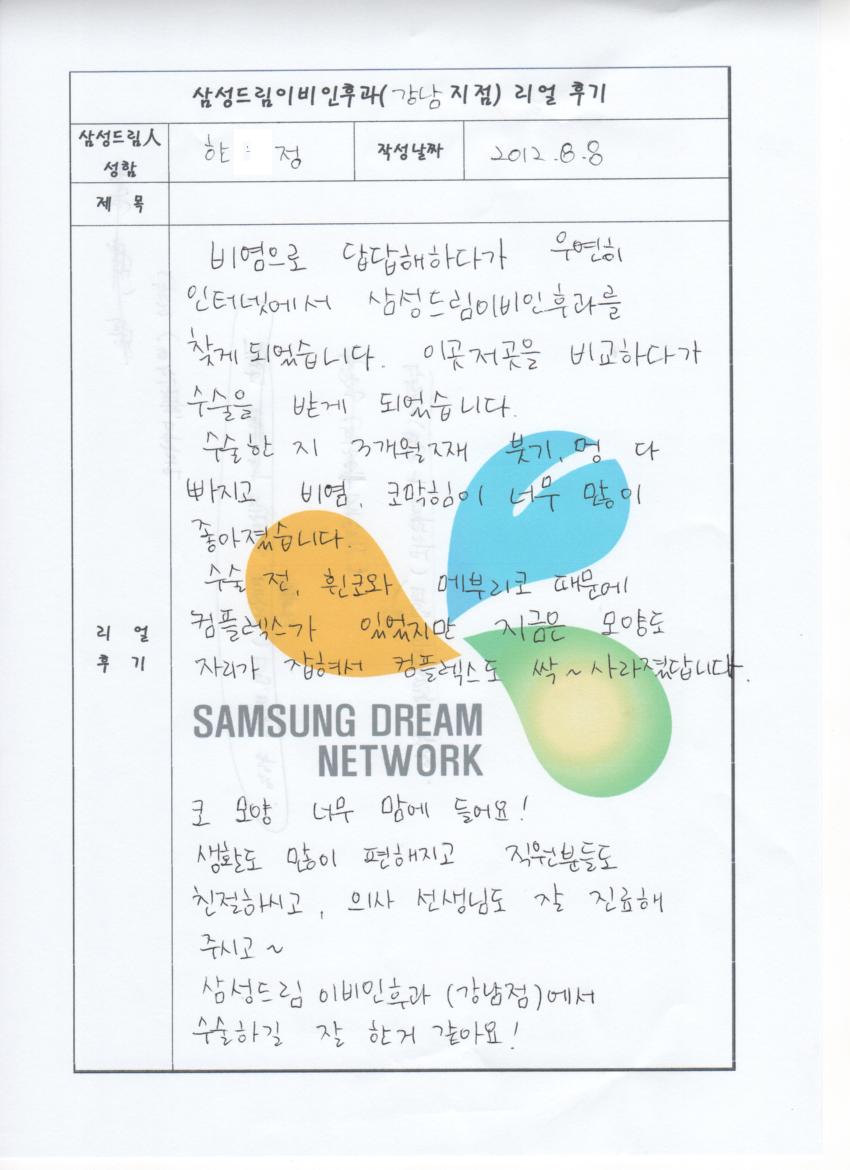 삼성드림이비인후과(강남 지점) 리얼 후기
삼성드림人 성함
한 정
작성날짜
2012.8.8
제 목
리 얼 후 기
비염으로 답답해하다가 우연히
인터넷에서 삼성드림이비인후과를
찾게 되었습니다. 이곳저곳을 비교하다가
수술을 받게 되었습니다.
수술한 지 3개월째 붓기, 멍 다
빠지고 비염, 코막힘이 너무 많이
좋아졌습니다.
수술 전, 휜코와 메부리코 때문에
컴플렉스가 있었지만 지금은 모양도
자리가 잡혀서 컴플렉스도 싹~ 사라졌답니다.
SAMSUNG DREAM
NETWORK
코 모양 너무 맘에 들어요!
생활도 많이 편해지고 직원분들도
친절하시고, 의사 선생님도 잘 진료해
주시고~
삼성드림 이비인후과 (강남점)에서
수술하길 잘 한거 같아요!